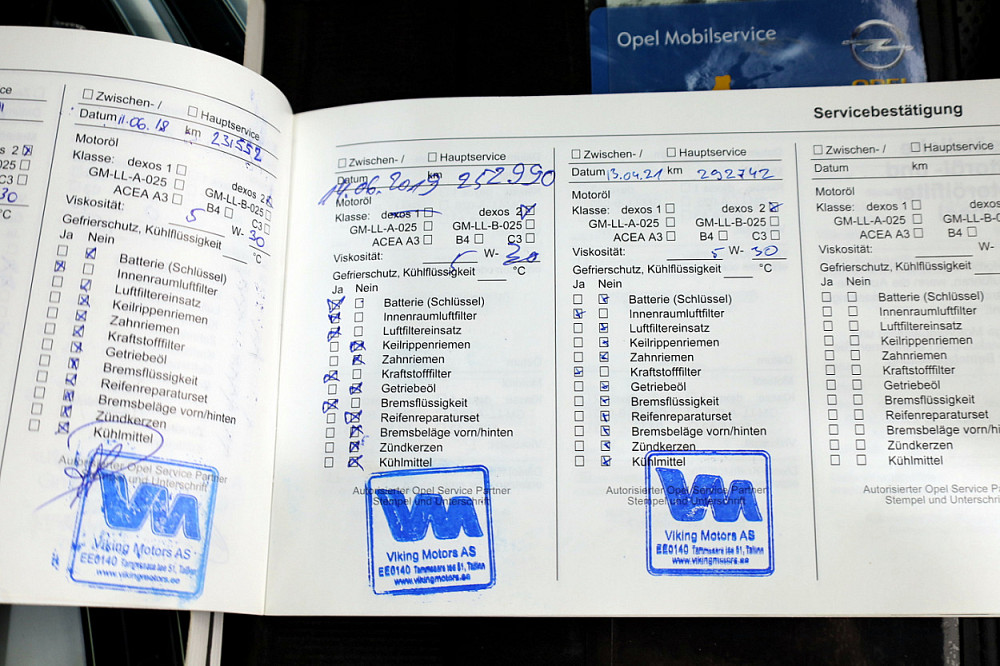 Opel Mobilservice
OPEL
Servicebestätigung
ce
s 2
025
C3
30
Zwischen- / Hauptservice
Datum 11.06.18 km 231552
Motoröl
Klasse: dexos 1 dexos 2
GM-LL-A-025 GM-LL-B-025
ACEA A3 B4 C3
Viskosität: 5 W- 30
Gefrierschutz, Kühlflüssigkeit °C
Ja Nein
Batterie (Schlüssel)
Innenraumluftfilter
Luftfiltereinsatz
Keilrippenriemen
Zahnriemen
Kraftstofffilter
Getriebeöl
Bremsflüssigkeit
Reifenreparaturset
Bremsbeläge vorn/hinten
Zündkerzen
Kühlmittel
Autorisierter Opel Service Partner
Stempel und Unterschrift
VM
Viking Motors AS
EE0140 Tammsaare tee 51, Tallinn
www.vikingmotors.ee
Zwischen- / Hauptservice
Datum 14.06.2019 km 252990
Motoröl
Klasse: dexos 1 dexos 2
GM-LL-A-025 GM-LL-B-025
ACEA A3 B4 C3
Viskosität: 5 W- 30
Gefrierschutz, Kühlflüssigkeit °C
Ja Nein
Batterie (Schlüssel)
Innenraumluftfilter
Luftfiltereinsatz
Keilrippenriemen
Zahnriemen
Kraftstofffilter
Getriebeöl
Bremsflüssigkeit
Reifenreparaturset
Bremsbeläge vorn/hinten
Zündkerzen
Kühlmittel
Autorisierter Opel Service Partner
Stempel und Unterschrift
VM
Viking Motors AS
EE0140 Tammsaare tee 51, Tallinn
www.vikingmotors.ee
Zwischen- / Hauptservice
Datum 13.04.21 km 292742
Motoröl
Klasse: dexos 1 dexos 2
GM-LL-A-025 GM-LL-B-025
ACEA A3 B4 C3
Viskosität: 5 W- 30
Gefrierschutz, Kühlflüssigkeit °C
Ja Nein
Batterie (Schlüssel)
Innenraumluftfilter
Luftfiltereinsatz
Keilrippenriemen
Zahnriemen
Kraftstofffilter
Getriebeöl
Bremsflüssigkeit
Reifenreparaturset
Bremsbeläge vorn/hinten
Zündkerzen
Kühlmittel
Autorisierter Opel Service Partner
Stempel und Unterschrift
VM
Viking Motors AS
EE0140 Tammsaare tee 51, Tallinn
www.vikingmotors.ee
Zwischen- / Hauptservice
Datum km
Motoröl
Klasse: dexos 1 dexos
GM-LL-A-025 GM-LL-B-02
ACEA A3 B4 C3
Viskosität: W-
Gefrierschutz, Kühlflüssigkeit
Ja Nein
Batterie (Schlüssel)
Innenraumluftfilter
Luftfiltereinsatz
Keilrippenriemen
Zahnriemen
Kraftstofffilter
Getriebeöl
Bremsflüssigkeit
Reifenreparaturset
Bremsbeläge vorn/hinten
Zündkerzen
Kühlmittel
Autorisierter Opel Service Pa
Stempel und Unterschrift